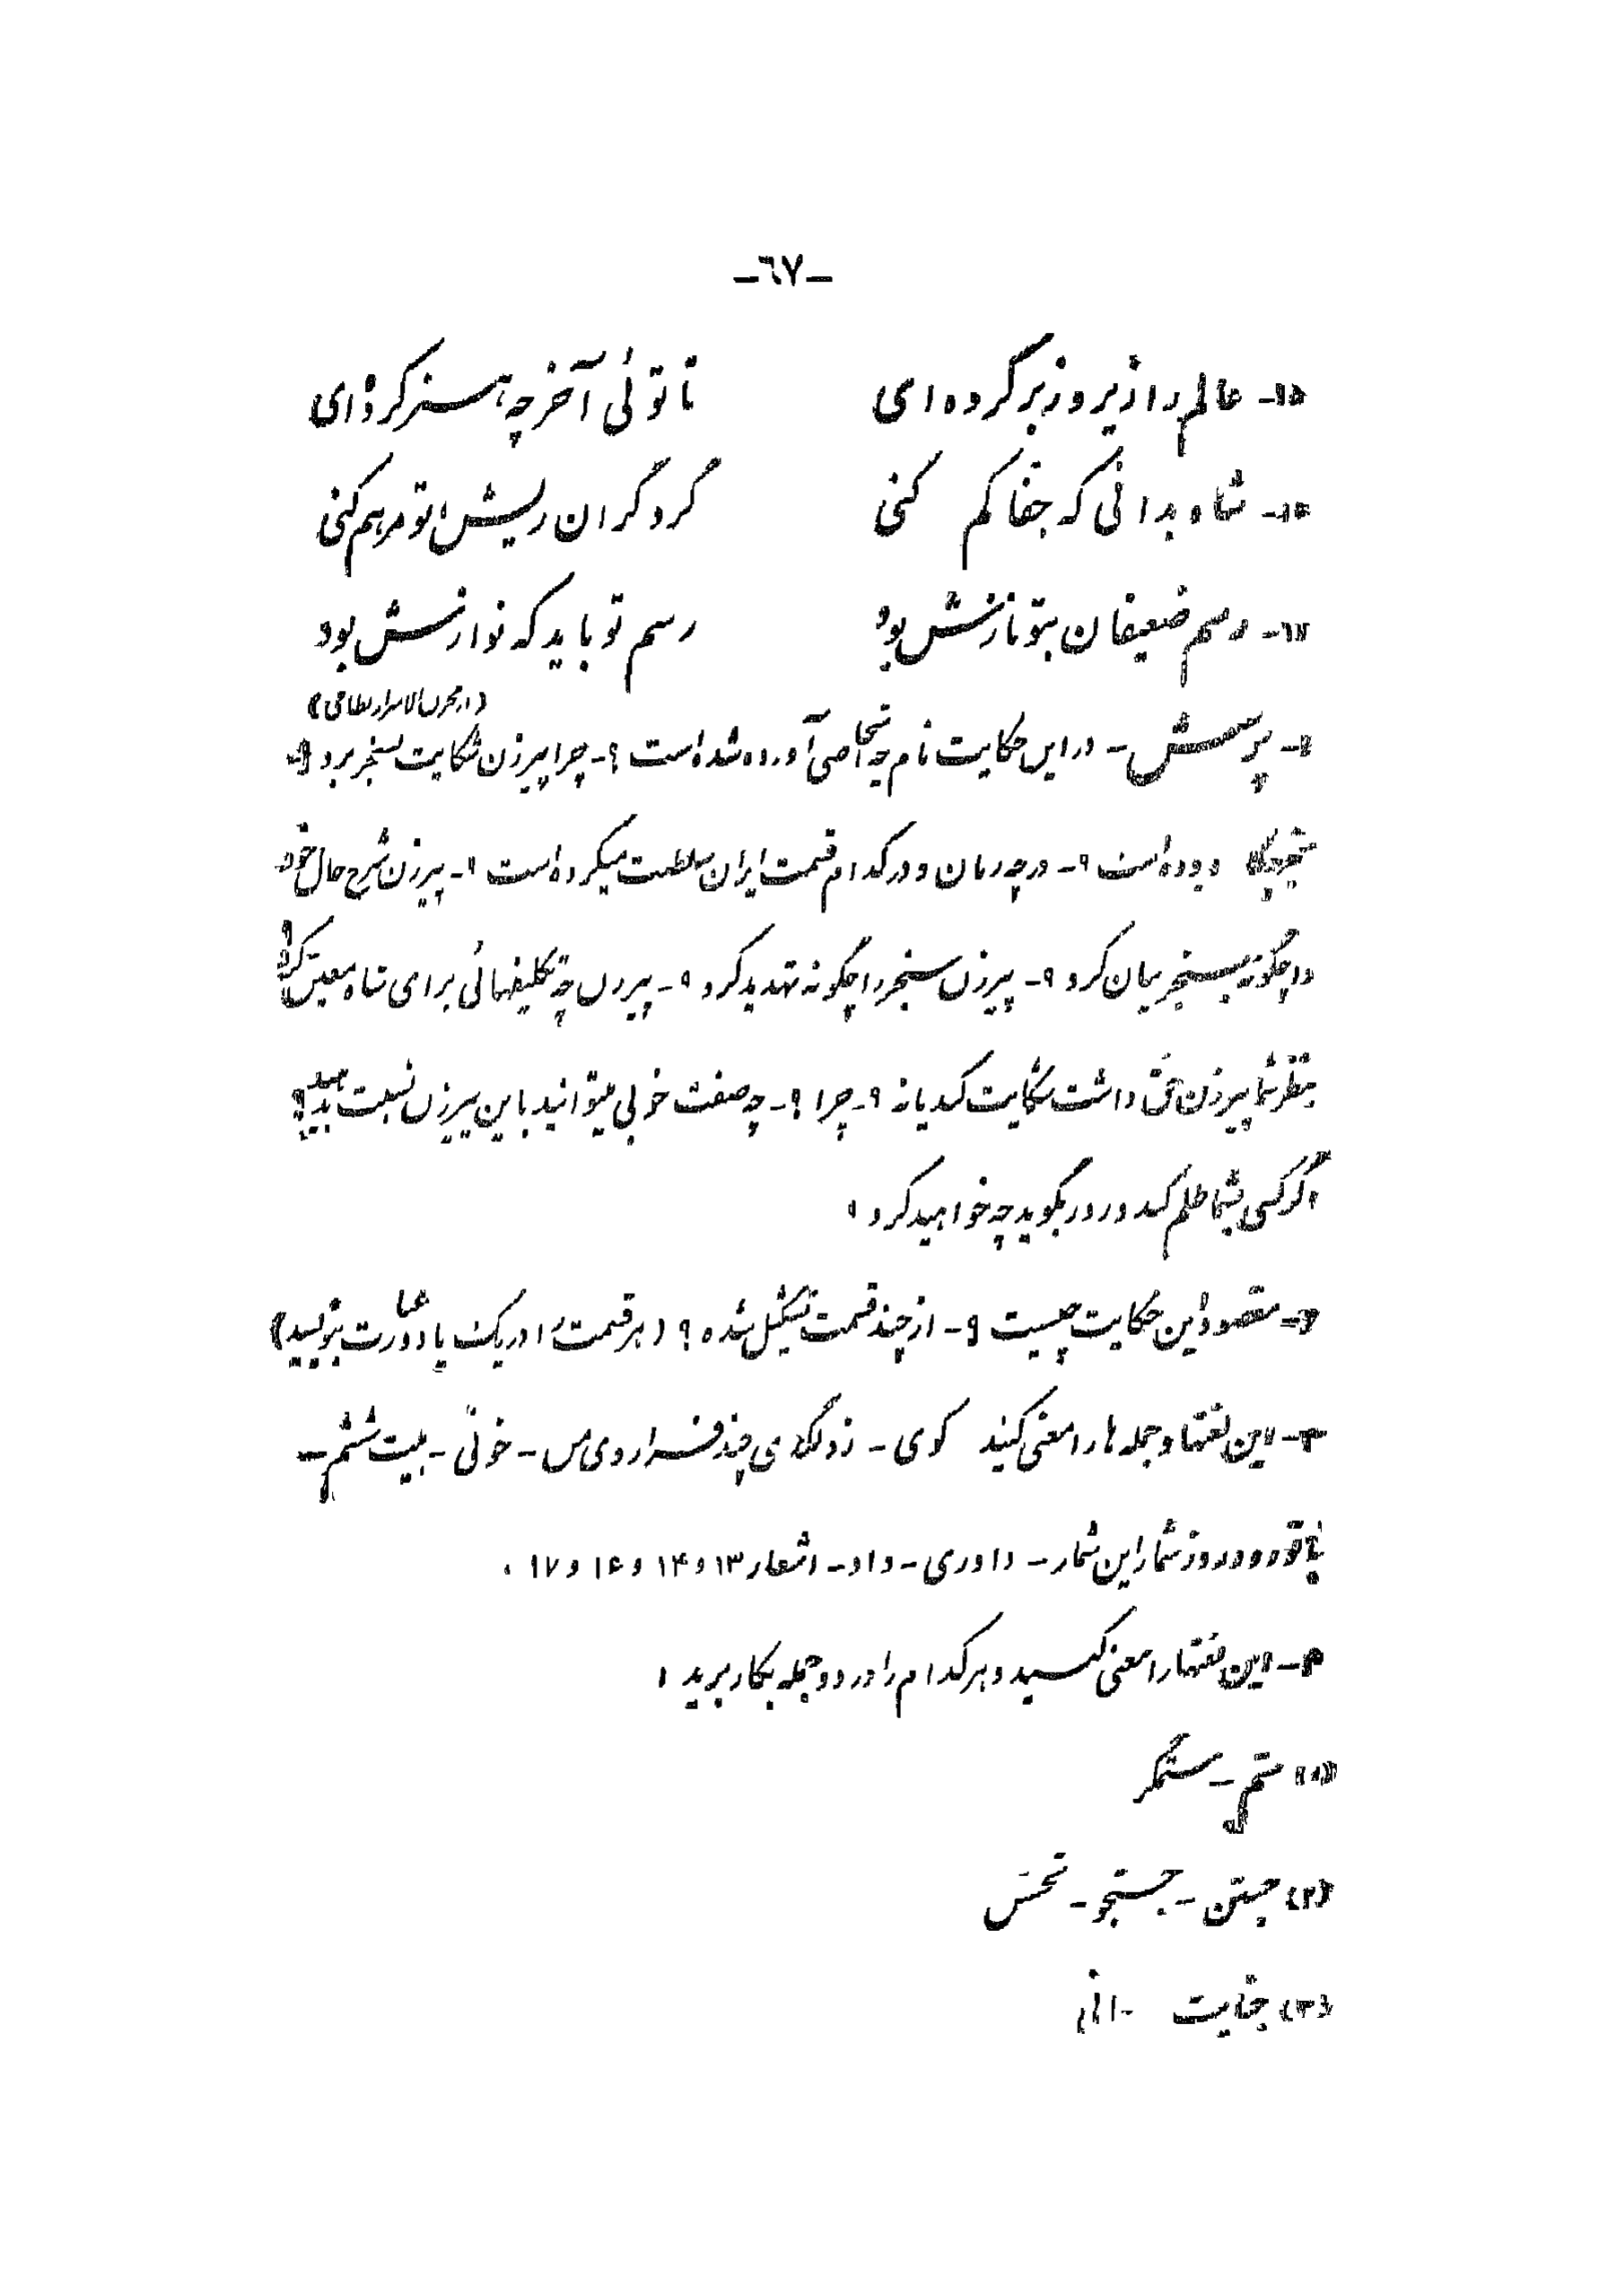 -٦٧-
١٥- عالم را زیر و زبر کرده ای    تا توئی آخر چه هنر کرده ای
١٦- شاه بدانی که جفا کم کنی    گر دگران ریش تو مرهم کنی
١٧- رسم ضعیفان بتو نازش بود    رسم تو باید که نوازش بود
(از مخزن الاسرار نظامی)
١- پرسش - در این حکایت نام چه اشخاصی آورده شده است ؟- چرا پیرزن شکایت بسنجر برد ؟-
سنجر که بوده است ؟- در چه زمان و در کدام قسمت ایران سلطنت میکرده است ؟- پیرزن شرح حال خود
را چگونه بسنجر بیان کرد ؟- پیرزن سنجر را چگونه تهدید کرد ؟- پیرزن چه تکلیفهائی برای شاه معین کرد ؟
بنظر شما پیرزن حق داشت شکایت کند یا نه ؟- چرا ؟- چه صفت خوبی میتوانید باین پیرزن نسبت بدهید ؟
اگر کسی بشما ظلم کند و زور بگوید چه خواهید کرد ؟
٢- مقصود این حکایت چیست ؟- از چند قسمت تشکیل شده ؟ (هر قسمت را در یک یا دو عبارت بنویسید)
٣- این لغتها و جمله ها را معنی کنید کوی - زد لگدی چند فرا روی من - خونی - بیت ششم -
با تو رود روز شمار این شمار - داوری - داد - اشعار ١٣ و ١۴ و ١۶ و ١٧ .
۴- این لغتها را معنی کنید و هر کدام را در دو جمله بکار برید :
(١) ستم - ستمگر
(٢) جستن - جستجو - تجسس
(٣) جنایت - جانی